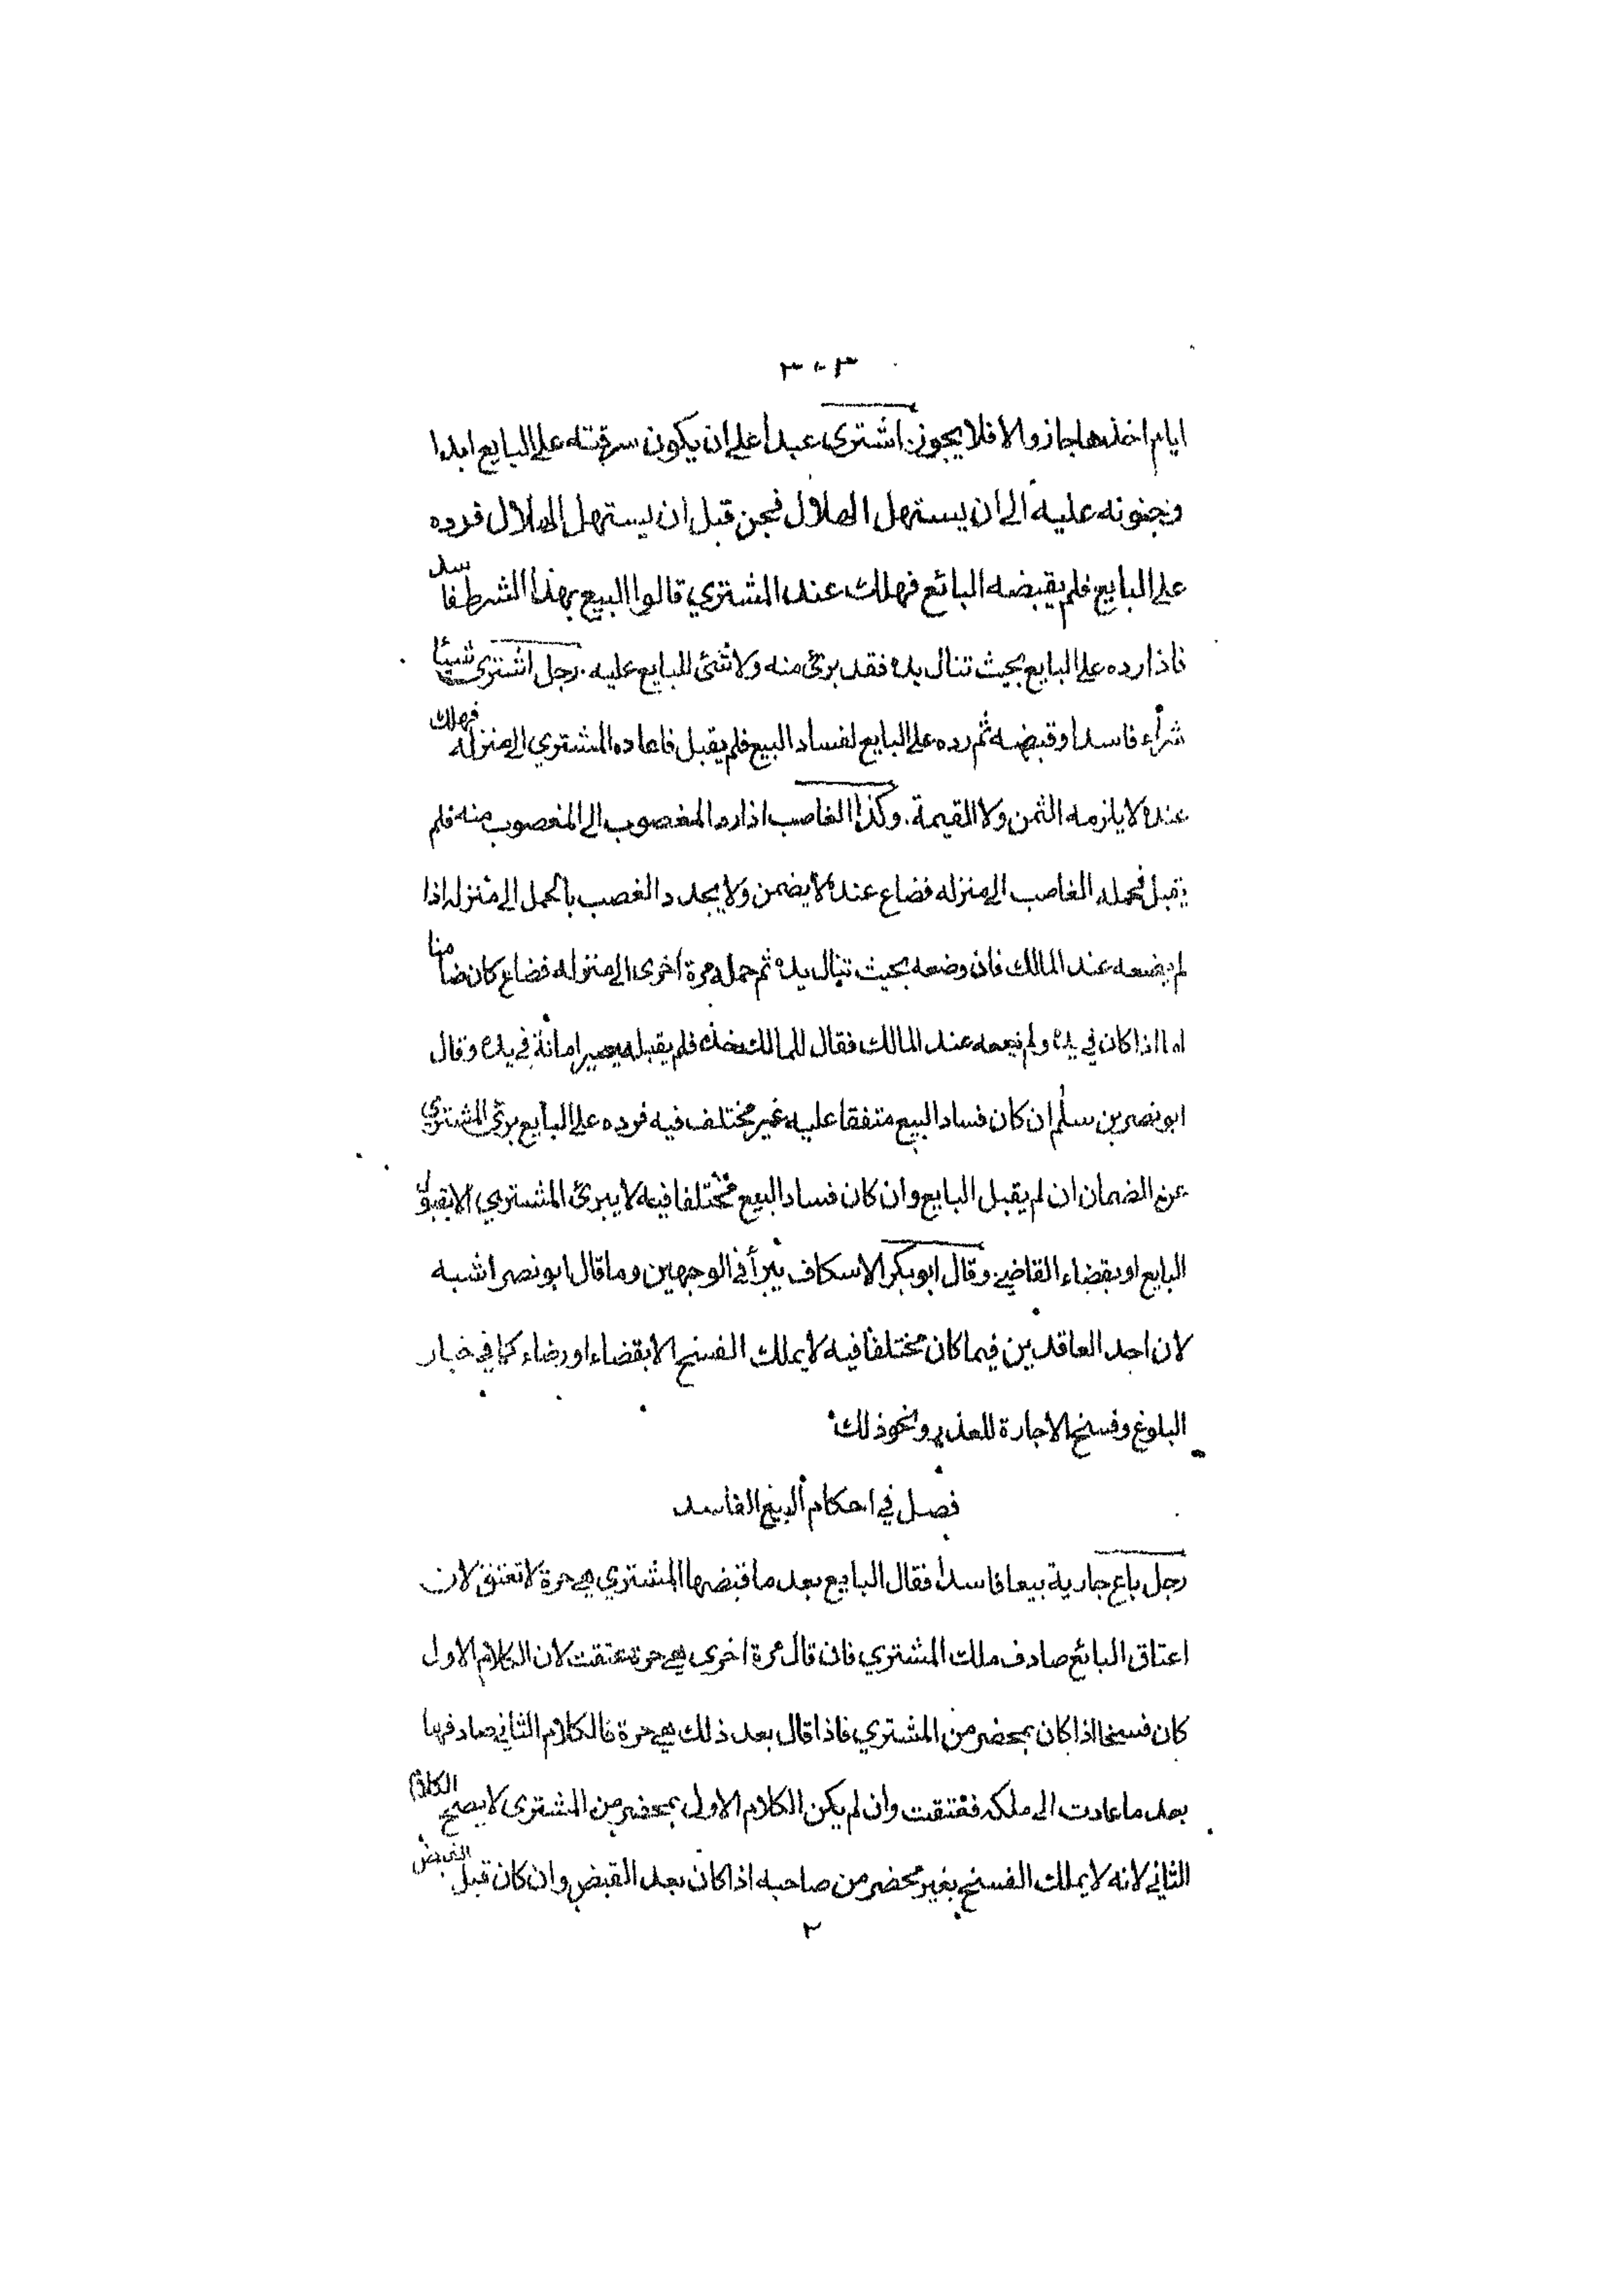 ٣٠٣
ايام اخذها جاز والا فلا يجوز. اشترى عبدا على ان يكون سرقته على البايع ابدا
وجنونه عليه الى ان يستهل الهلال فجن قبل ان يستهل الهلال فرده
على البايع فلم يقبضه البائع فهلك عند المشتري قالوا البيع بهذا الشرط فاسد
فاذا رده على البايع بحيث تنال يده فقد برئ منه ولا شئ للبايع عليه. رجل اشترى شيئا
شراء فاسدا وقبضه ثم رده على البايع لفساد البيع فلم يقبل فاعاده المشتري الى منزله فهلك
عنده لا يلزمه الثمن ولا القيمة. وكذا الغاصب اذا رد المغصوب الى المغصوب منه فلم
يقبل فحمله الغاصب الى منزله فضاع عنده لا يضمن ولا يجدد الغصب بالحمل الى منزله اذا
لم يضعه عند المالك فان وضعه بحيث تنال يده ثم حمله مرة اخرى الى منزله فضاع كان ضامنا
اما اذا كان في يده ولم يضعه عند المالك فقال للمالك خذه فلم يقبله يصير امانة في يده وقال
ابو نصر بن سلم ان كان فساد البيع متفقا عليه غير مختلف فيه فرده على البايع برئ المشتري
عن الضمان ان لم يقبل البايع وان كان فساد البيع مختلفا فيه لا يبرئ المشتري الا بقبول
البايع او بقضاء القاضي وقال ابو بكر الاسكاف يبرأ في الوجهين وما قال ابو نصر اشبه
لان احد العاقدين فيما كان مختلفا فيه لا يملك الفسخ الا بقضاء او رضاء كما في خيار
البلوغ وفسخ الاجارة للعذر ونحو ذلك
فصل في احكام البيع الفاسد
رجل باع جارية بيعا فاسدا فقال البايع بعد ما قبضها المشتري هي حرة لا تعتق لان
اعتاق البائع صادف ملك المشتري فان قال مرة اخرى هي حرة عتقت لان الكلام الاول
كان فسخا اذا كان بمحضر من المشتري فاذا قال بعد ذلك هي حرة فالكلام الثاني صادفها
بعد ما عادت الى ملكه فعتقت وان لم يكن الكلام الاول بمحضر من المشترى لا يصح الكلام
الثاني لانه لا يملك الفسخ بغير محضر من صاحبه اذا كان بعد القبض وان كان قبل القبض
٢